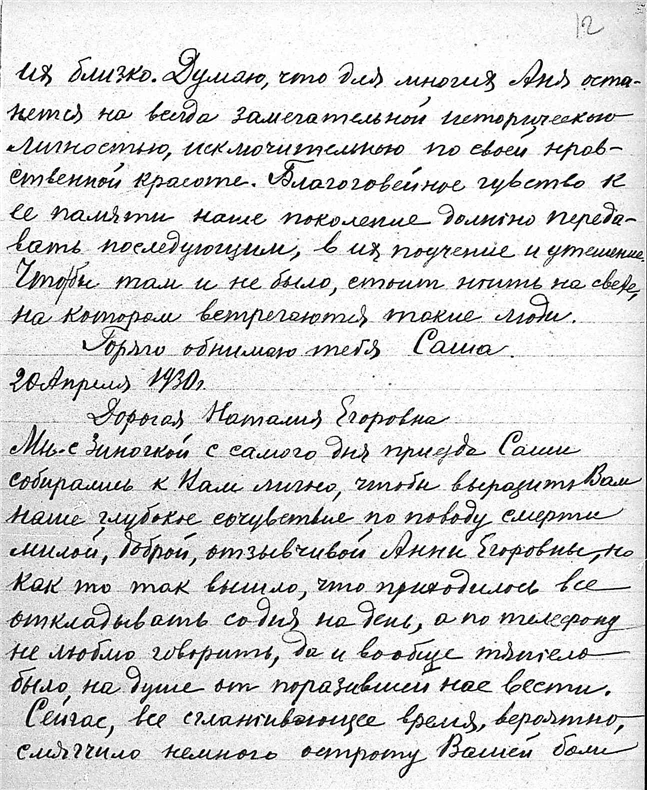 12
их близко. Думаю, что для многих Аня оста-
нется на всегда замечательной историческою
личностью, исключительною по своей нрав-
ственной красоте. Благоговейное чувство к
ее памяти наше поколение должно переда-
вать последующим, в их поучение и утешение.
Чтобы там и не было, стоит жить на свете,
на котором встречаются такие люди.
Горячо обнимаю тебя Саша.
20 Апреля 1930г
Дорогая Наталия Егоровна
Мы с Зиночкой с самого дня приезда Саши
собирались к Вам лично, чтобы выразить Вам
наше глубокое сочувствие по поводу смерти
милой, доброй, отзывчивой Анны Егоровны, но
как то так вышло, что приходилось все
откладывать со дня на день, а по телефону
не люблю говорить, да и вообще тяжело
было на душе от поразившей нас вести.
Сейчас, все сглаживающее время, вероятно,
смягчило немного остроту Вашей боли